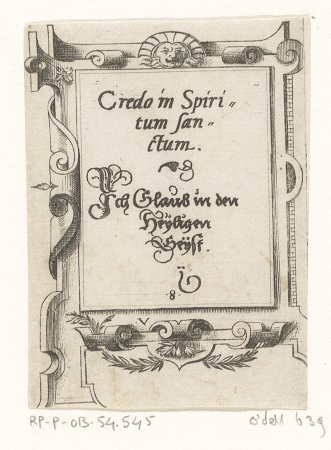 Credo in Spiri„
tum san„
ctum.
Ich Glaub in den
Heyligen
Geyst.
8.
RP-P-OB-54.545
O'dell b39